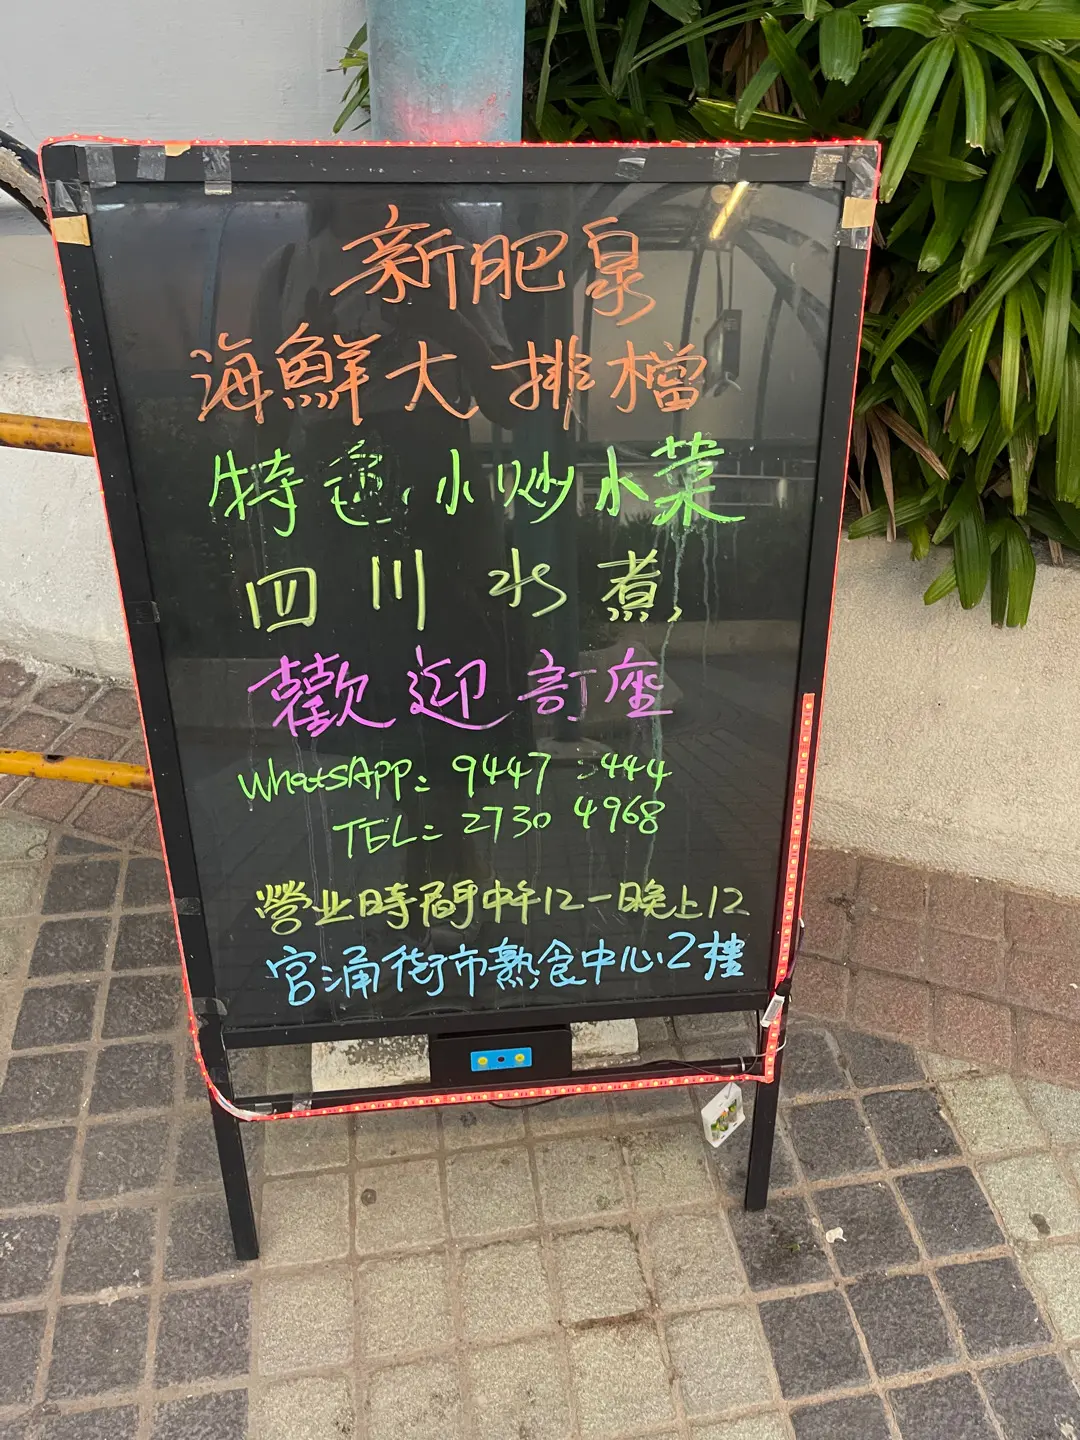 新肥泉
海鮮大排檔
特色小炒小菜
四川水煮
歡迎訂座
WhatsApp: 9447 444
TEL: 2730 4968
營业時間中午12-晚上12
官涌街市熟食中心2樓